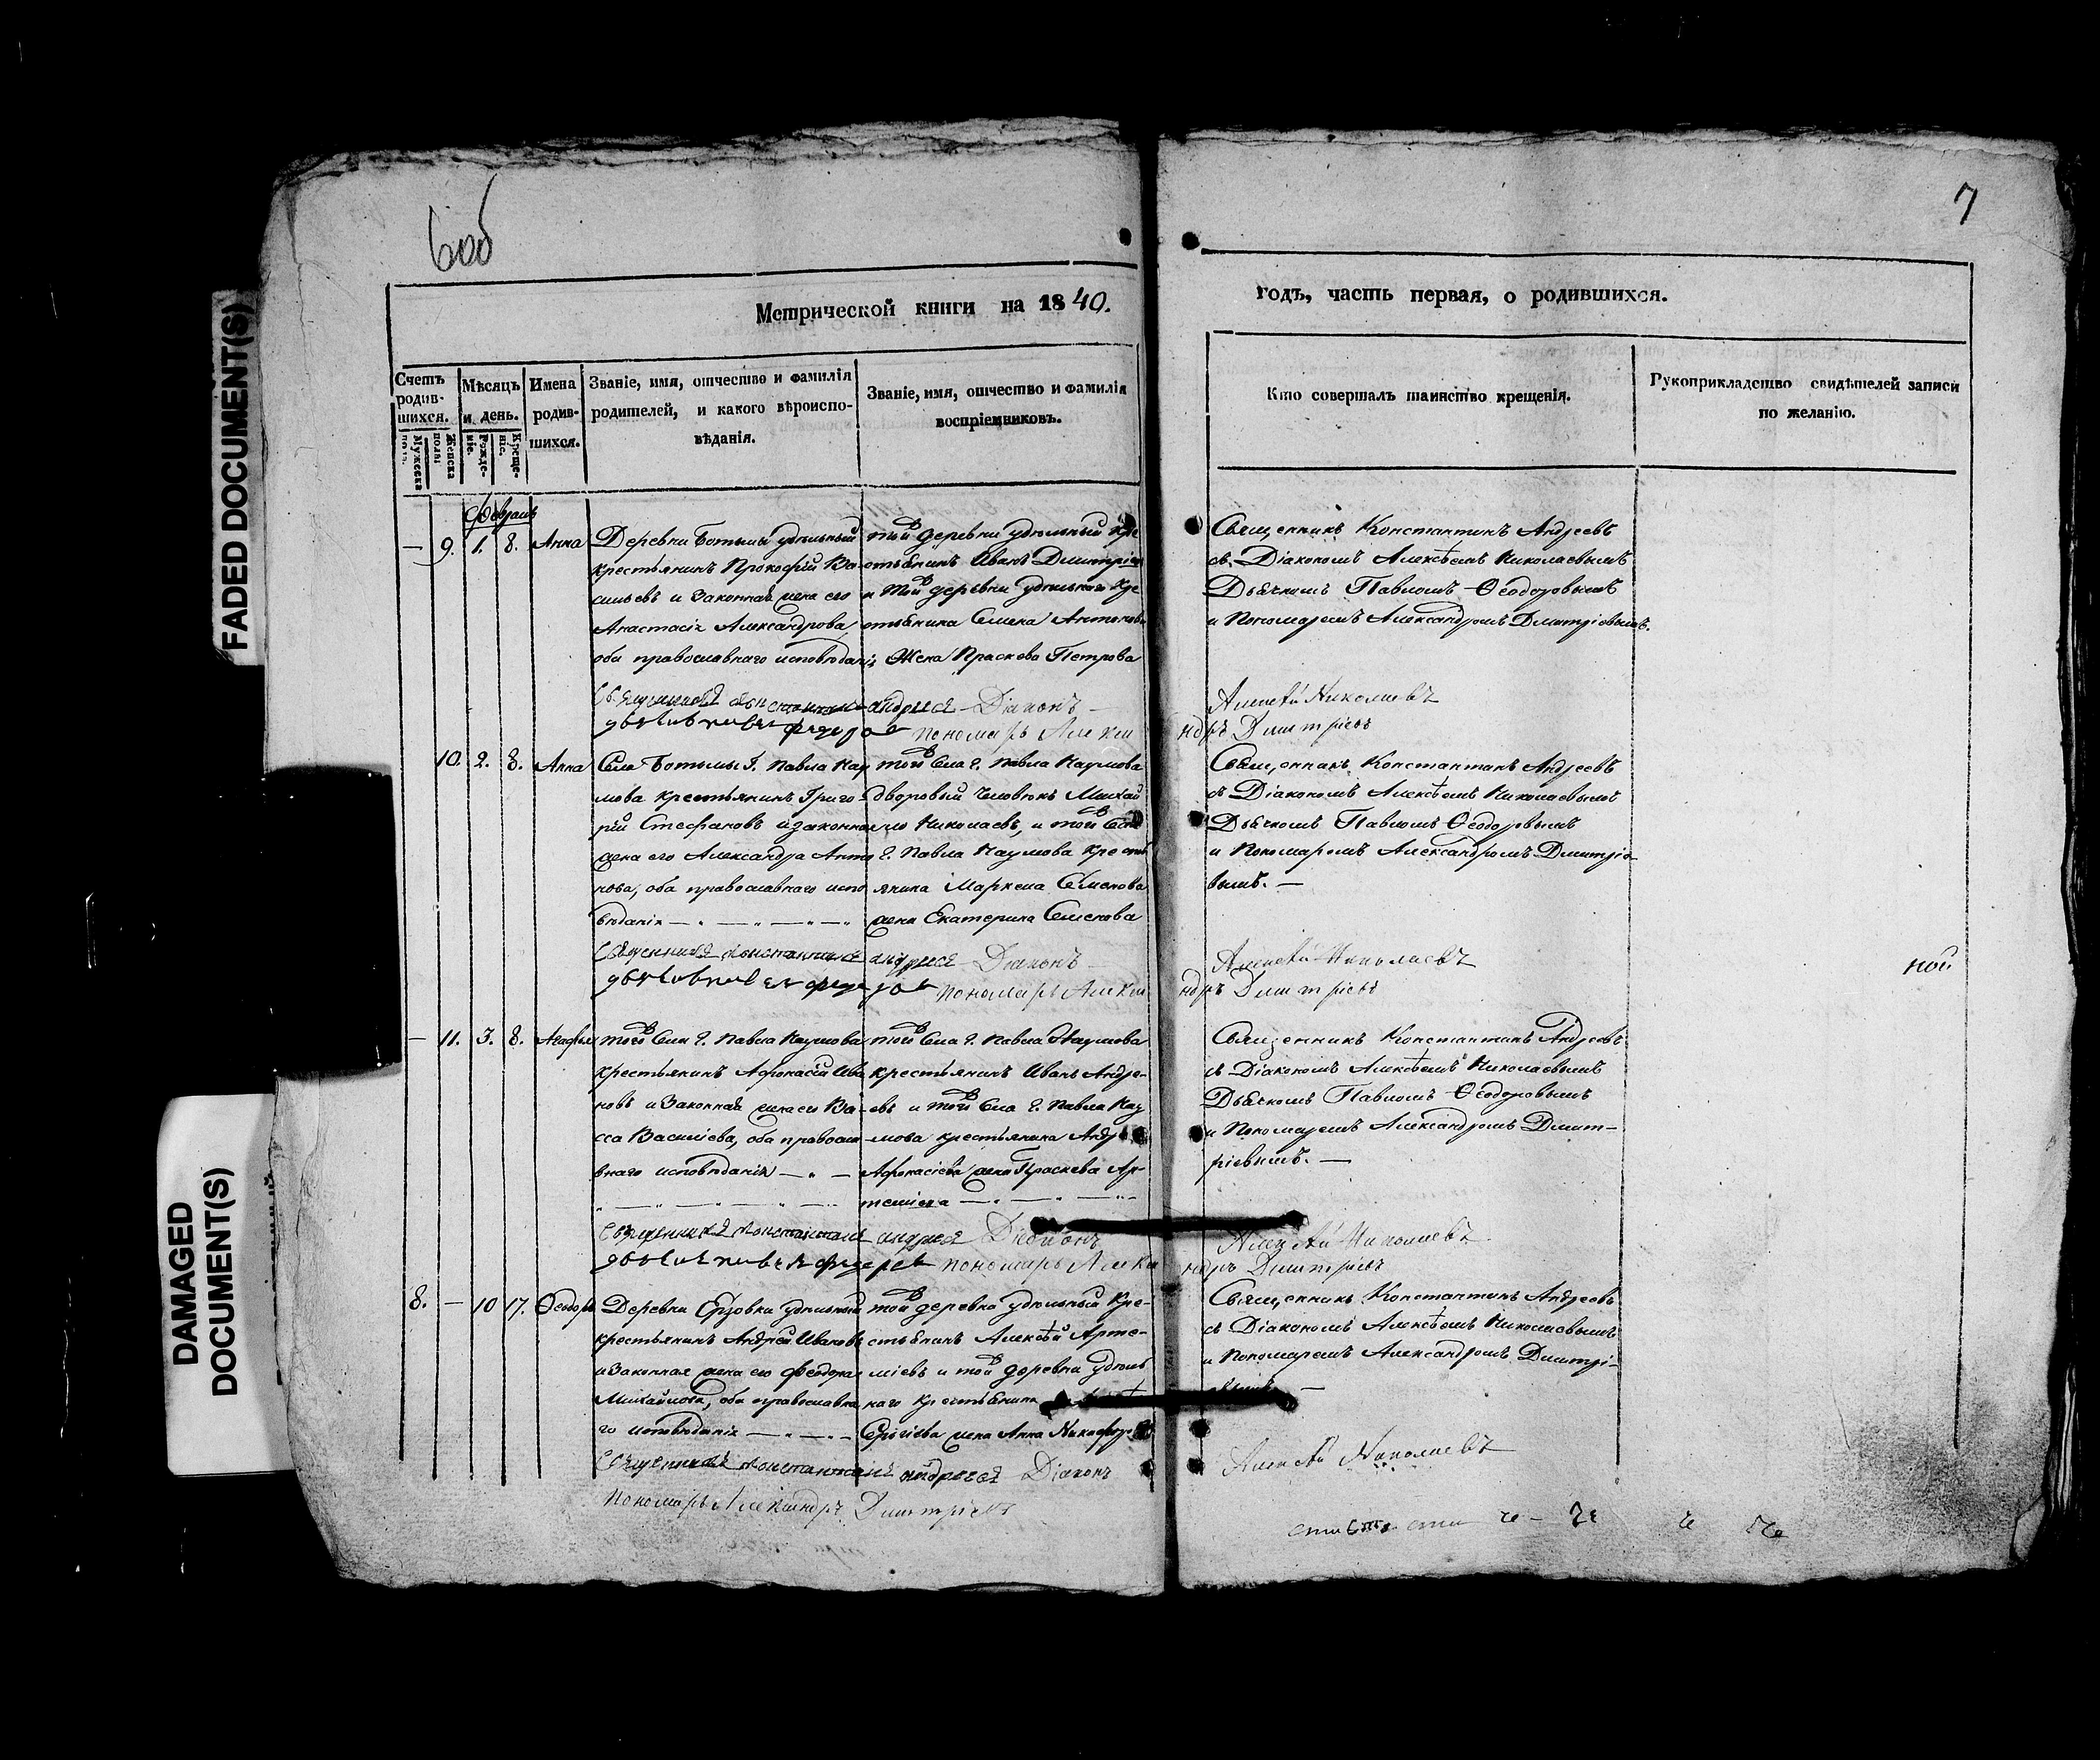 FADED DOCUMENT(S)
DAMAGED
DOCUMENT(S)
6об
7
Метрической книги на 1840.
годъ, часть первая, о родившихся.
Счетъ родив-шихся.
Мужеска
Женска полы
Мѣсяцъ и день.
Рожде-ніе.
Креще-ніе.
Имена родив-шихся.
Званіе, имя, отчество и фамилія
родителей, и какого вѣроиспо-
вѣданія.
Званіе, имя, отчество и фамилія
воспріемниковъ.
Кто совершалъ таинство крещенія.
Рукоприкладство свидѣтелей записи
по желанію.
Февраль
— 9. 1. 8. Анна
Деревни Ботьмы удѣльный
крестьянинъ Прокофій Ва-
сильевъ и законная жена его
Анастасія Александрова,
оба православнаго исповѣданія
той деревни удѣльный кре
стьянинъ Иванъ Дмитріевъ
и той деревни удѣльнаго кре
стьянина Семена Антонова
жена Праскева Петрова
Священникъ Константинъ Андреевъ
съ Діакономъ Алексѣемъ Николаевымъ
Дьячкомъ Павломъ Ѳеодоровымъ
и Пономаремъ Александромъ Дмитріевымъ.
Священникъ Константинъ Андреевъ Діаконъ Алексѣй Николаевъ
пономарь Александръ Дмитріевъ
10. 2. 8. Анна
Села Ботьмы г. Павла Нау
мова крестьянинъ Григо-
рій Стефановъ и законная
жена его Александра Анто
нова, оба православнаго испо
вѣданія
того села г. Павла Наумова
дворовый человѣкъ Михай
ло Николаевъ, и того села
г. Павла Наумова кресть
янина Маркела Семенова
жена Екатерина Семенова
Священникъ Константинъ Андреевъ
съ Діакономъ Алексѣемъ Николаевымъ
Дьячкомъ Павломъ Ѳеодоровымъ
и Пономаремъ Александромъ Дмитріе-
вымъ. —
Священникъ Константинъ Андреевъ Діаконъ Алексѣй Николаевъ
пономарь Александръ Дмитріевъ
ной
— 11. 3. 8. Агафья
того села г. Павла Наумова
крестьянинъ Афонасій Ива
новъ и законная жена его Ва-
сса Васильева, оба правосла-
внаго исповѣданія
того села г. Павла Наумова
крестьянинъ Иванъ Андре-
евъ и того села г. Павла Нау
мова крестьянина Андрея
Афонасіева жена Праскева Ар-
темьева
Священникъ Константинъ Андреевъ
съ Діакономъ Алексѣемъ Николаевымъ
Дьячкомъ Павломъ Ѳеодоровымъ
и Пономаремъ Александромъ Дмит-
ріевымъ. —
Священникъ Константинъ Андреевъ Діаконъ Алексѣй Николаевъ
пономарь Александръ Дмитріевъ
8. — 10 17. Ѳеодоръ
Деревни Ерзовки удѣльный
крестьянинъ Андрей Ивановъ
и законная жена его Феодора
Михайлова, оба православна
го исповѣданія
той деревни удѣльный кре-
стьянинъ Алексѣй Арте-
міевъ и той деревни удѣль
наго крестьянина
Сергіева жена Анна Никифоро
Священникъ Константинъ Андреевъ
съ Діакономъ Алексѣемъ Николаевымъ
и Пономаремъ Александромъ Дмитрі-
Священникъ Константинъ Андреевъ Діаконъ Алексѣй Николаевъ
Пономарь Александръ Дмитріевъ